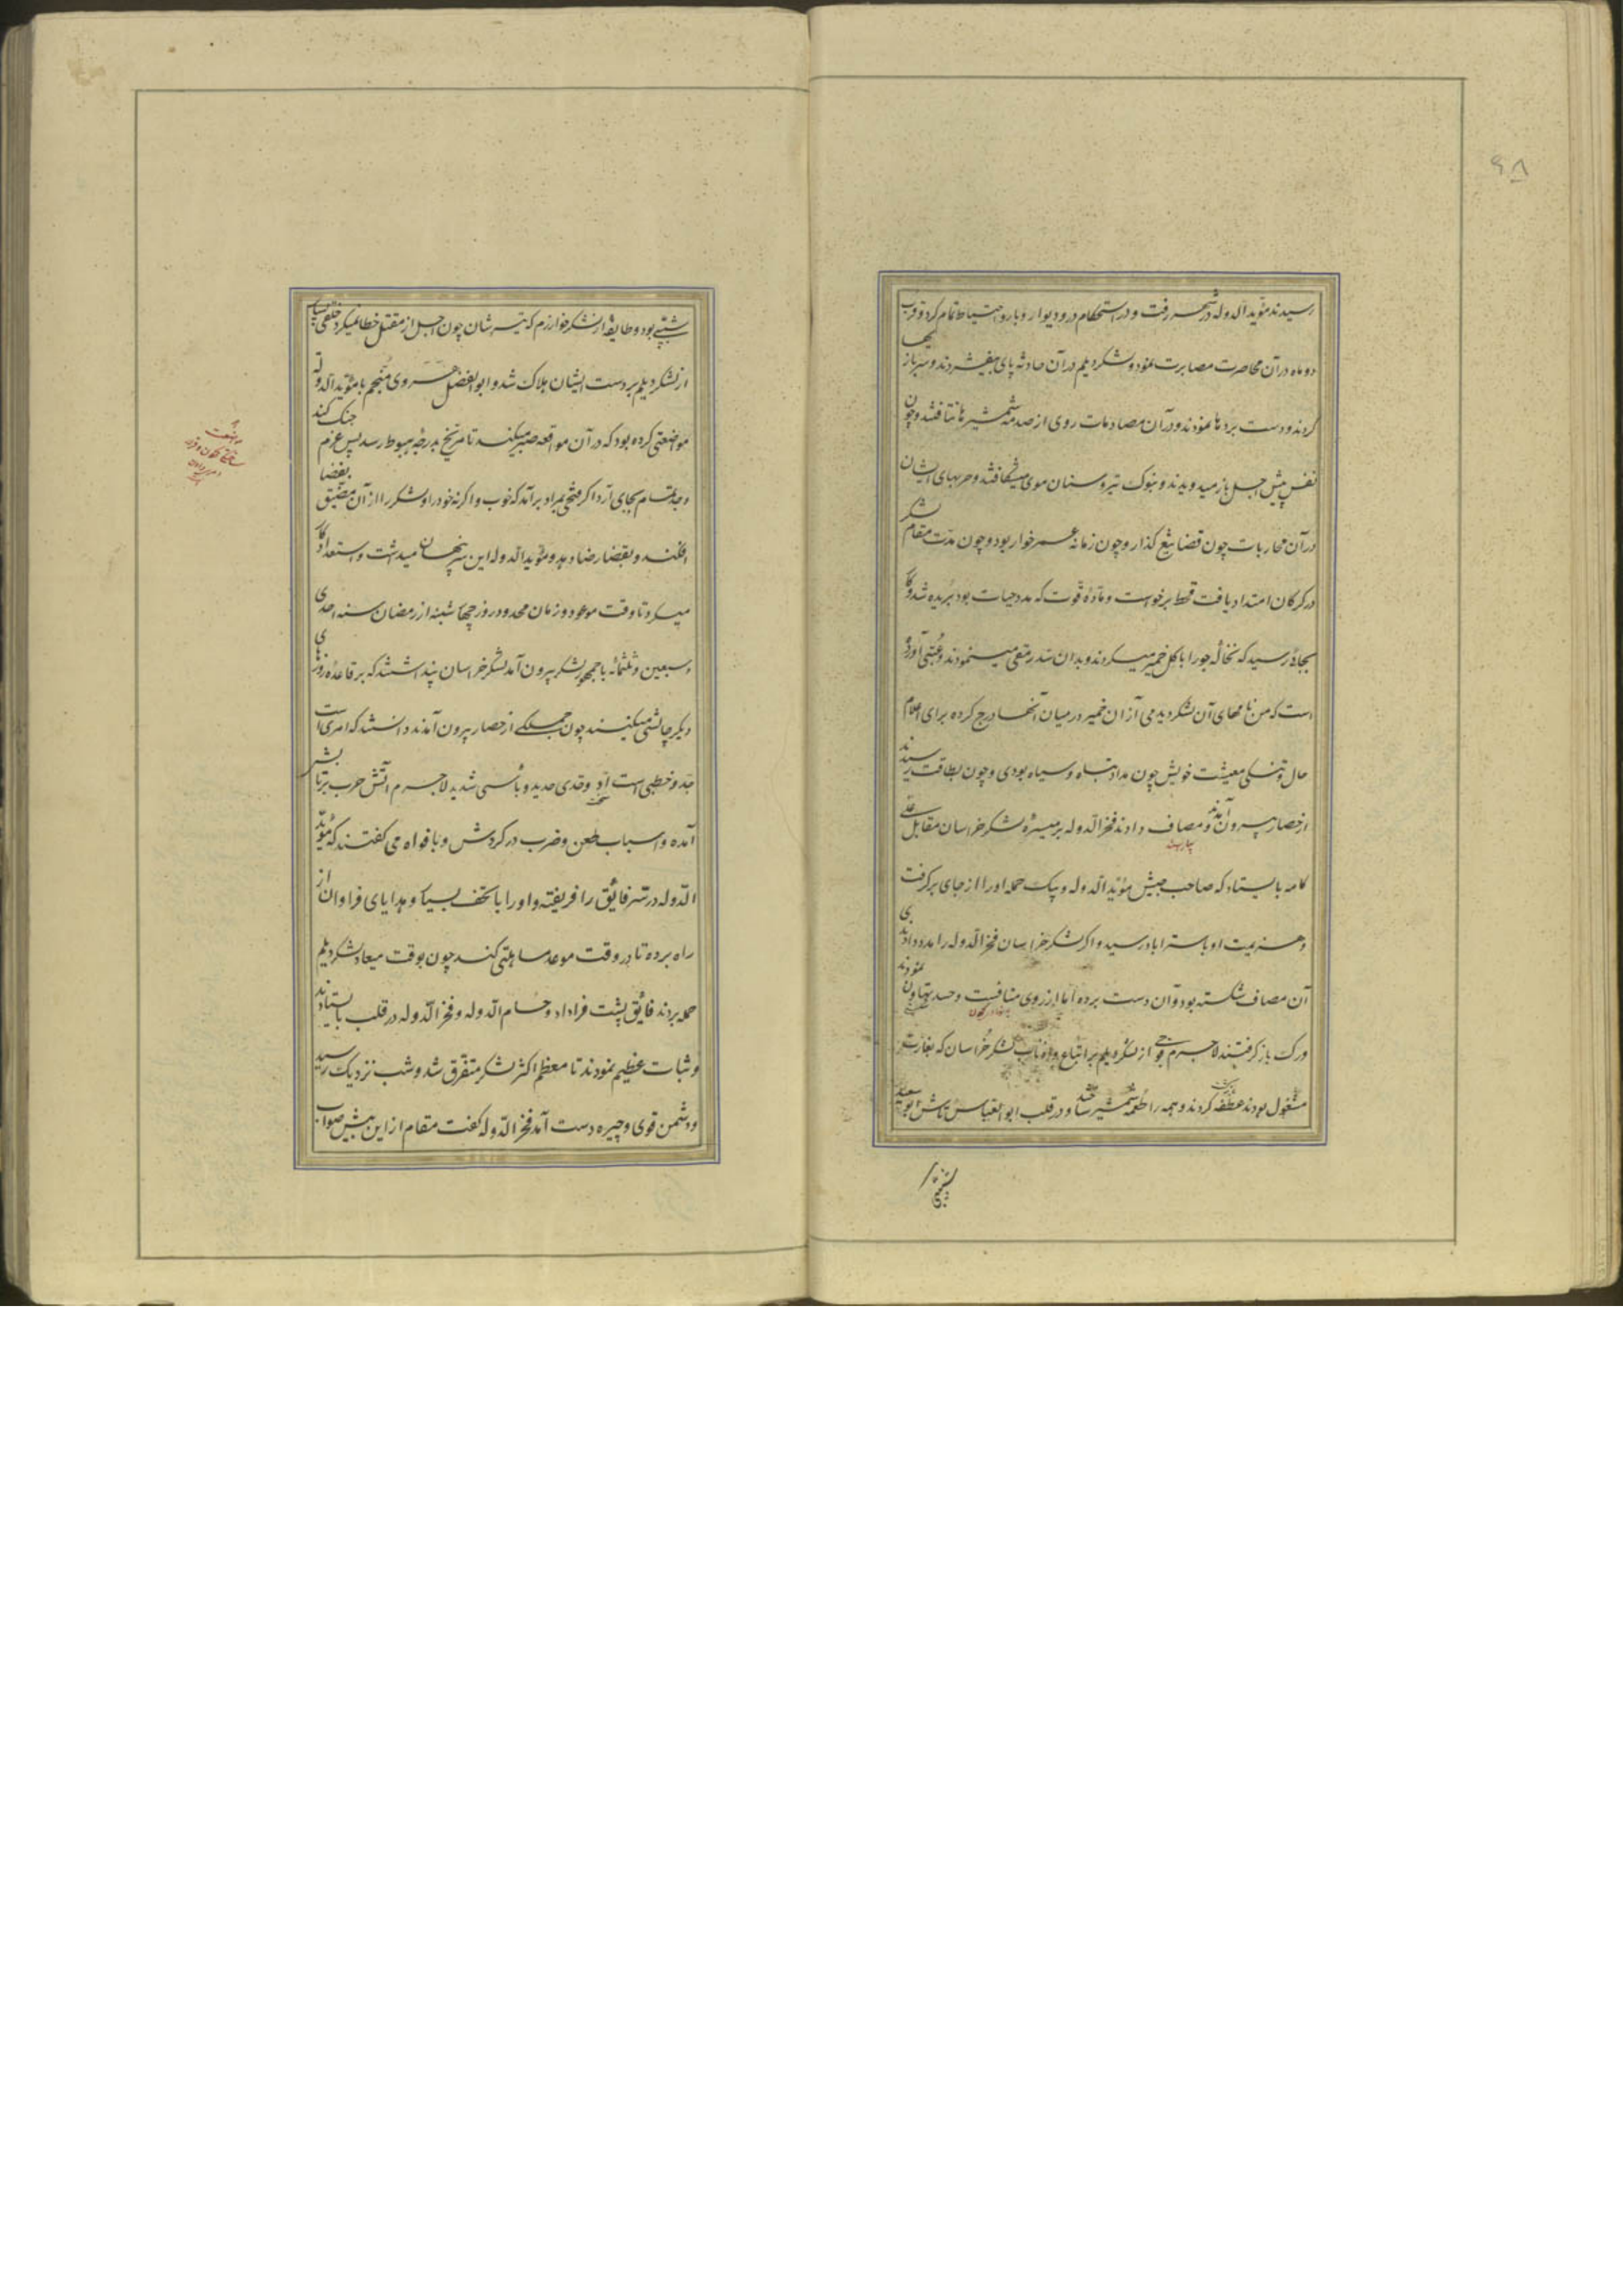 ۶۸
رسیدند مؤید الدوله در شهر رفت و در استحکام در و دیوار و بارو احتیاط تمام کرد و قرب
دو ماه در آن محاصرت مصابرت نمود و لشکر دیلم در آن حادثه پای بیفشردند و سر بازیها
کردند و دست بردها نمودند و در آن مصادمات روی از صدمه شمشیرها نتافتند و چون
نفس پیش اجل باز میدویدند و بنوک تیر و سنان موی میشکافتند و حربهای ایشان
در آن محاربات چون قضا تیغ گذار و چون زمانه عمر خوار بود و چون مدت مقام لشکر
در گرگان امتداد یافت قحط برخواست و ماده قوت که مدد حیات بود بریده شد و کار
بجائی رسید که نخاله جو را با گل خمیر میکردند و بدان سد رمقی مینمودند و عتبی آورده
است که من نامهای آن لشکر دیدمی از آن خمیر در میان آنها درج کرده برای اعلام
حال و تنگی معیشت خویش چون مداد تباه و سیاه بودی و چون بطاقت رسیدند
از حصار بیرون آمدند و مصاف دادند فخر الدوله بر میسره لشکر خراسان مقابل علی
کامه بایستاد که صاحب جیش مؤید الدوله و بیک حمله او را از جای برگرفت
و هزیمت او باستراباد رسید و اگر لشکر خراسان فخر الدوله را مدد دادندی
آن مصاف شکسته بود و آن دست برده اما از روی منافست و حسد تهاون نمودند
و رک باز گرفتند لاجرم فوجی از لشکر دیلم بر اتباع و اذناب لشکر خراسان که بغارت
مشغول بودند عطفه کردند و همه را طعمه شمشیر ساختند و در قلب ابو العباس تاش ابو سعید
شیبی بود و طایفه از لشکر خوارزم که تیر شان چون اجل از مقتل خطا نمیکرد خلقی بسیار
از لشکر دیلم بر دست ایشان هلاک شد و ابو الفضل هروی منجم با مؤید الدوله
مواضعتی کرده بود که در آن مواقعه صبر میکند تا مریخ بدرجه هبوط رسد پس عزم جنگ کند
و جد تمام بجای آرد اگر فتحی بمراد برآمد که خوب و اگر نه خود را و لشکر را از آن مضیق بفضا
افکند و بقضا رضا دهد و مؤید الدوله این سر پنهان میداشت و استعداد کار
میکرد تا وقت موعود و زمان محدود روز چهار شنبه از رمضان سنه احدی
و سبعین و ثلثمائه با جمهور لشکر بیرون آمد لشکر خراسان پنداشتند که بر قاعده روزهای
دیگر چالشی میکنند چون جملگی از حصار بیرون آمدند دانستند که امری است
جد و خطبی است اد و حدی حدید و باسی شدید لاجرم آتش حرب برتابش
آمده و اسباب طعن و ضرب در گردش و بافواه می گفتند که مؤید
الدوله در سر فائق را فریفته و او را با تحف بسیار و هدایای فراوان از
راه برده تا در وقت موعد مساهلتی کند چون بوقت میعاد لشکر دیلم
حمله بردند فائق پشت فرا داد و حسام الدوله و فخر الدوله در قلب بایستادند
و ثبات عظیم نمودند تا معظم اکثر لشکر متفرق شد و شب نزدیک رسید
و دشمن قوی و چیره دست آمد فخر الدوله گفت مقام از این بیش صواب